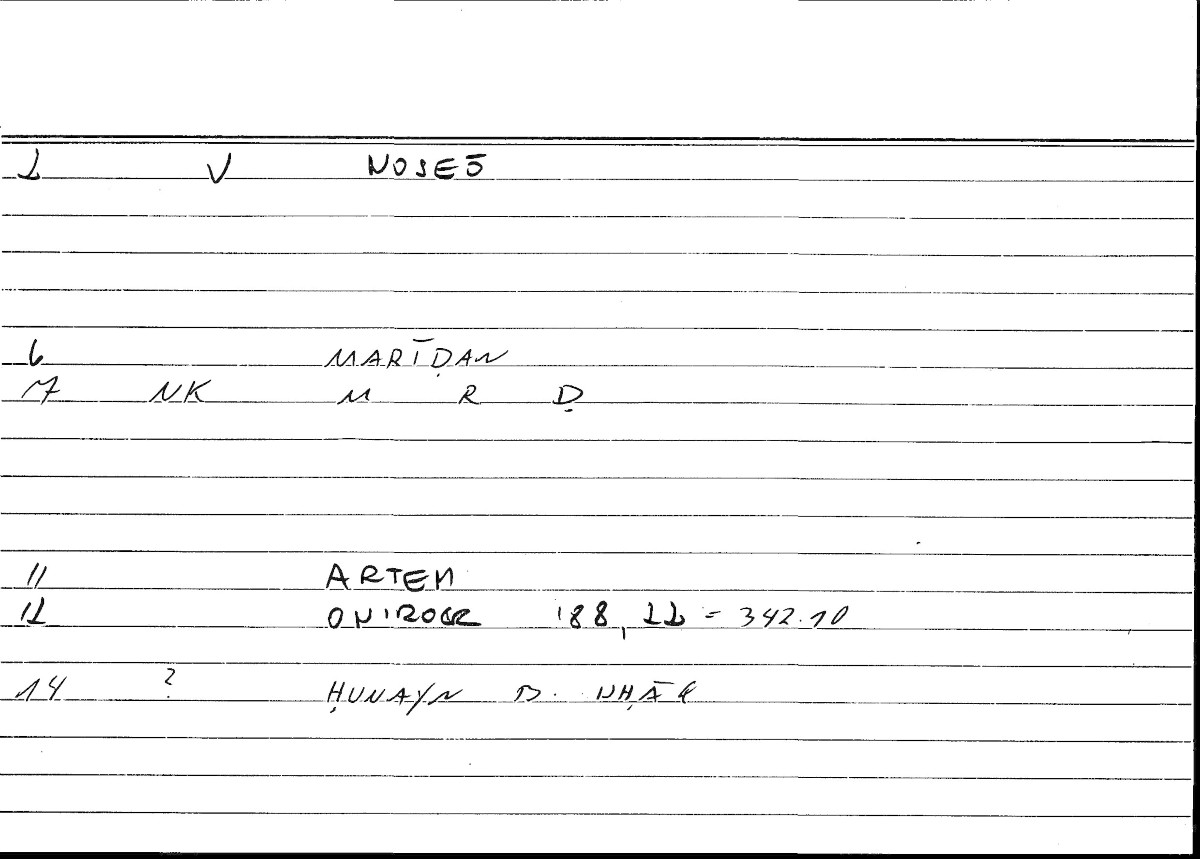 2 V NOSEŌ
6 MARĪḌAN
7 NK M R Ḍ
11 ARTEM
12 ONIROCR 188, 22 - 342.10
14 ? ḤUNAYN B. ISḤĀQ